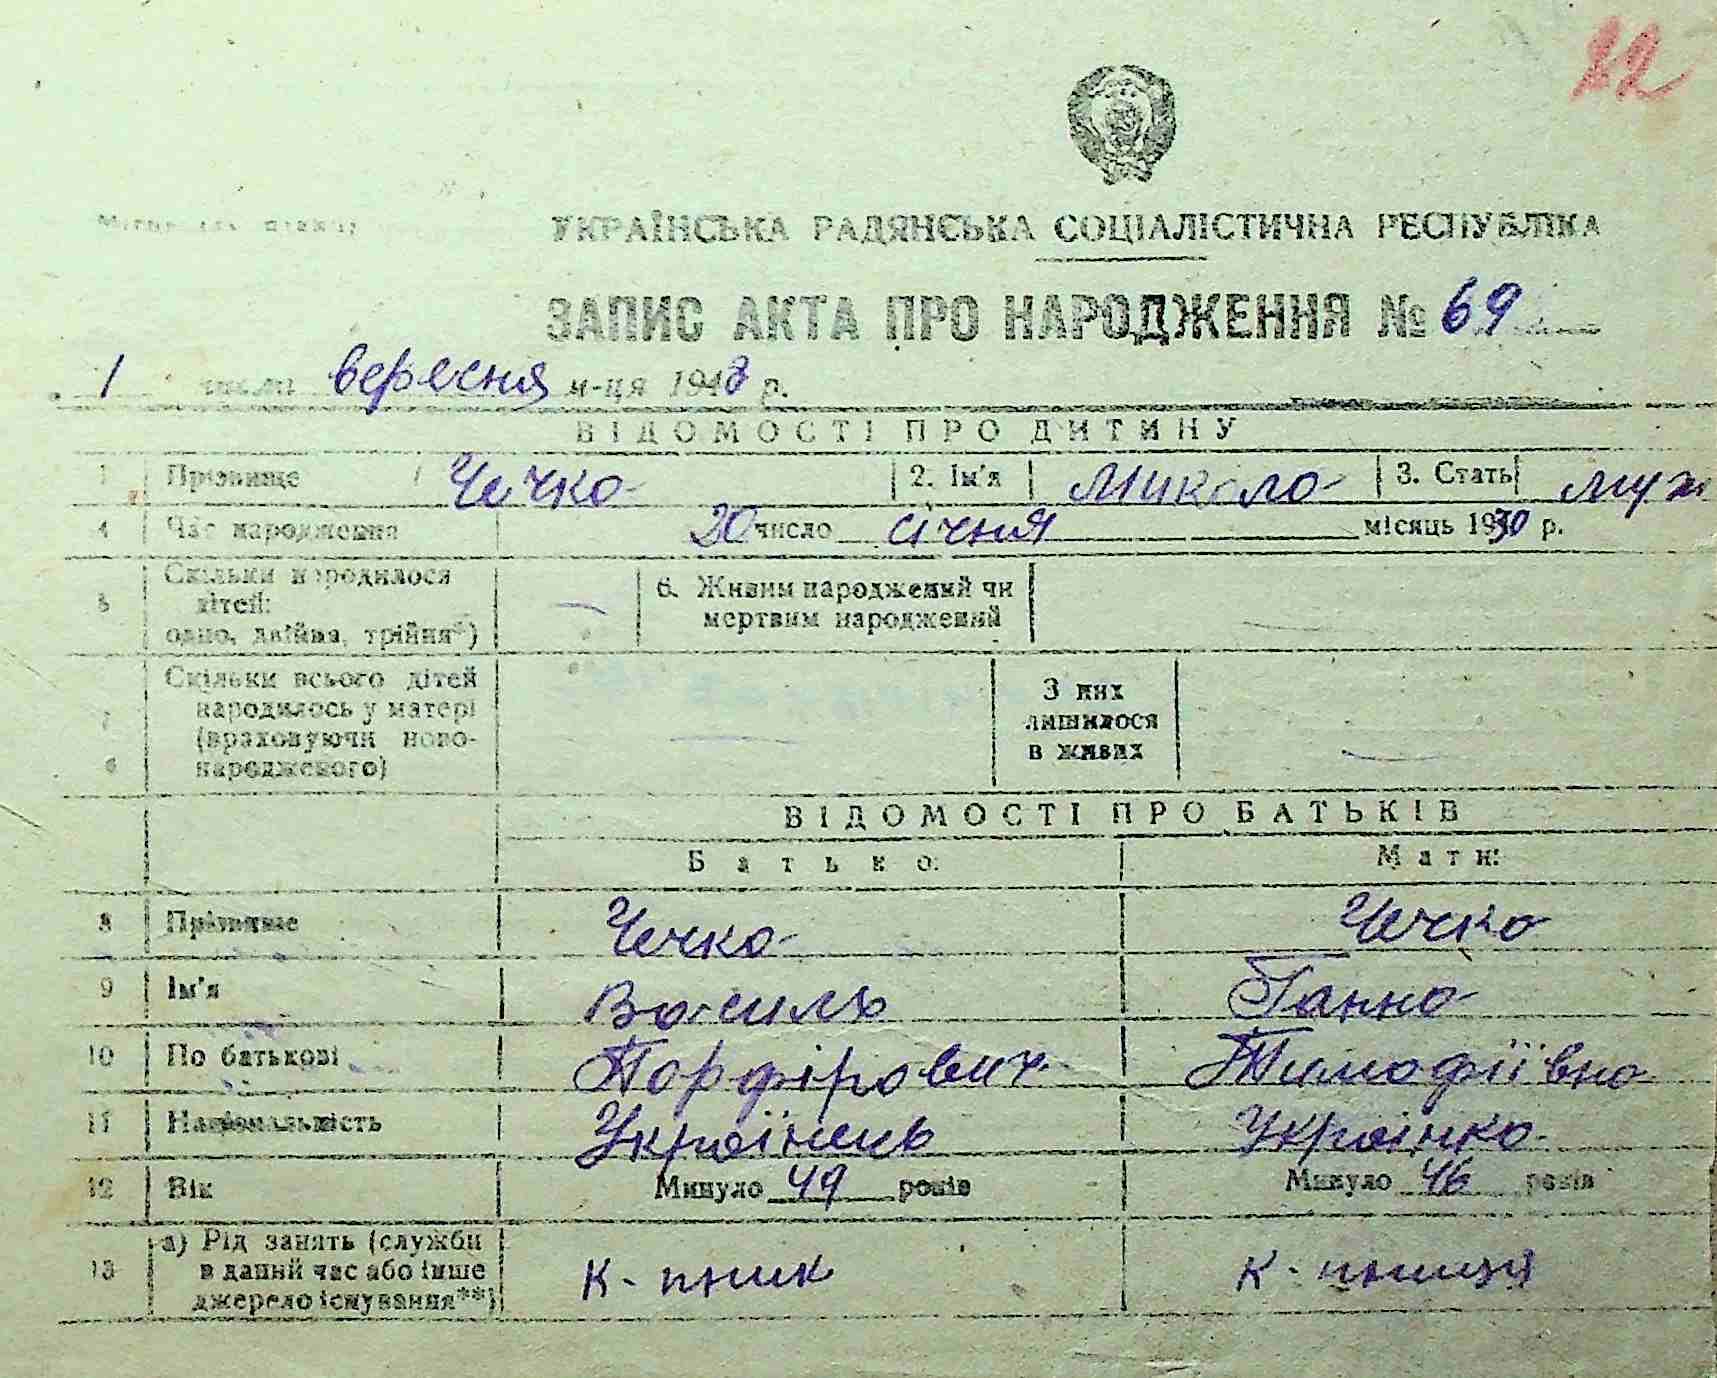 22
УКРАЇНСЬКА РАДЯНСЬКА СОЦІАЛІСТИЧНА РЕСПУБЛІКА
ЗАПИС АКТА ПРО НАРОДЖЕННЯ № 69
1 числа вересня м-ця 1948 р.
ВІДОМОСТІ ПРО ДИТИНУ
1 Прізвище Чечко 2. Ім'я Микола 3. Стать муж
4 Час народження 20 число січня місяць 1930 р.
5 Скільки народилося дітей: одно, двійня, трійня*) — 6. Живим народжений чи мертвим народжений —
7 Скільки всього дітей народилось у матері (враховуючи ново-народженого) — З них лишилося в живих —
ВІДОМОСТІ ПРО БАТЬКІВ
Батько: Мати:
8 Прізвище Чечко Чечко
9 Ім'я Василь Ганна
10 По батькові Порфірович Тимофіївна
11 Національність Українець Українка
12 Вік Минуло 49 років Минуло 46 років
13 а) Рід занять (служби в даний час або інше джерело існування**) к-пник к-пниця